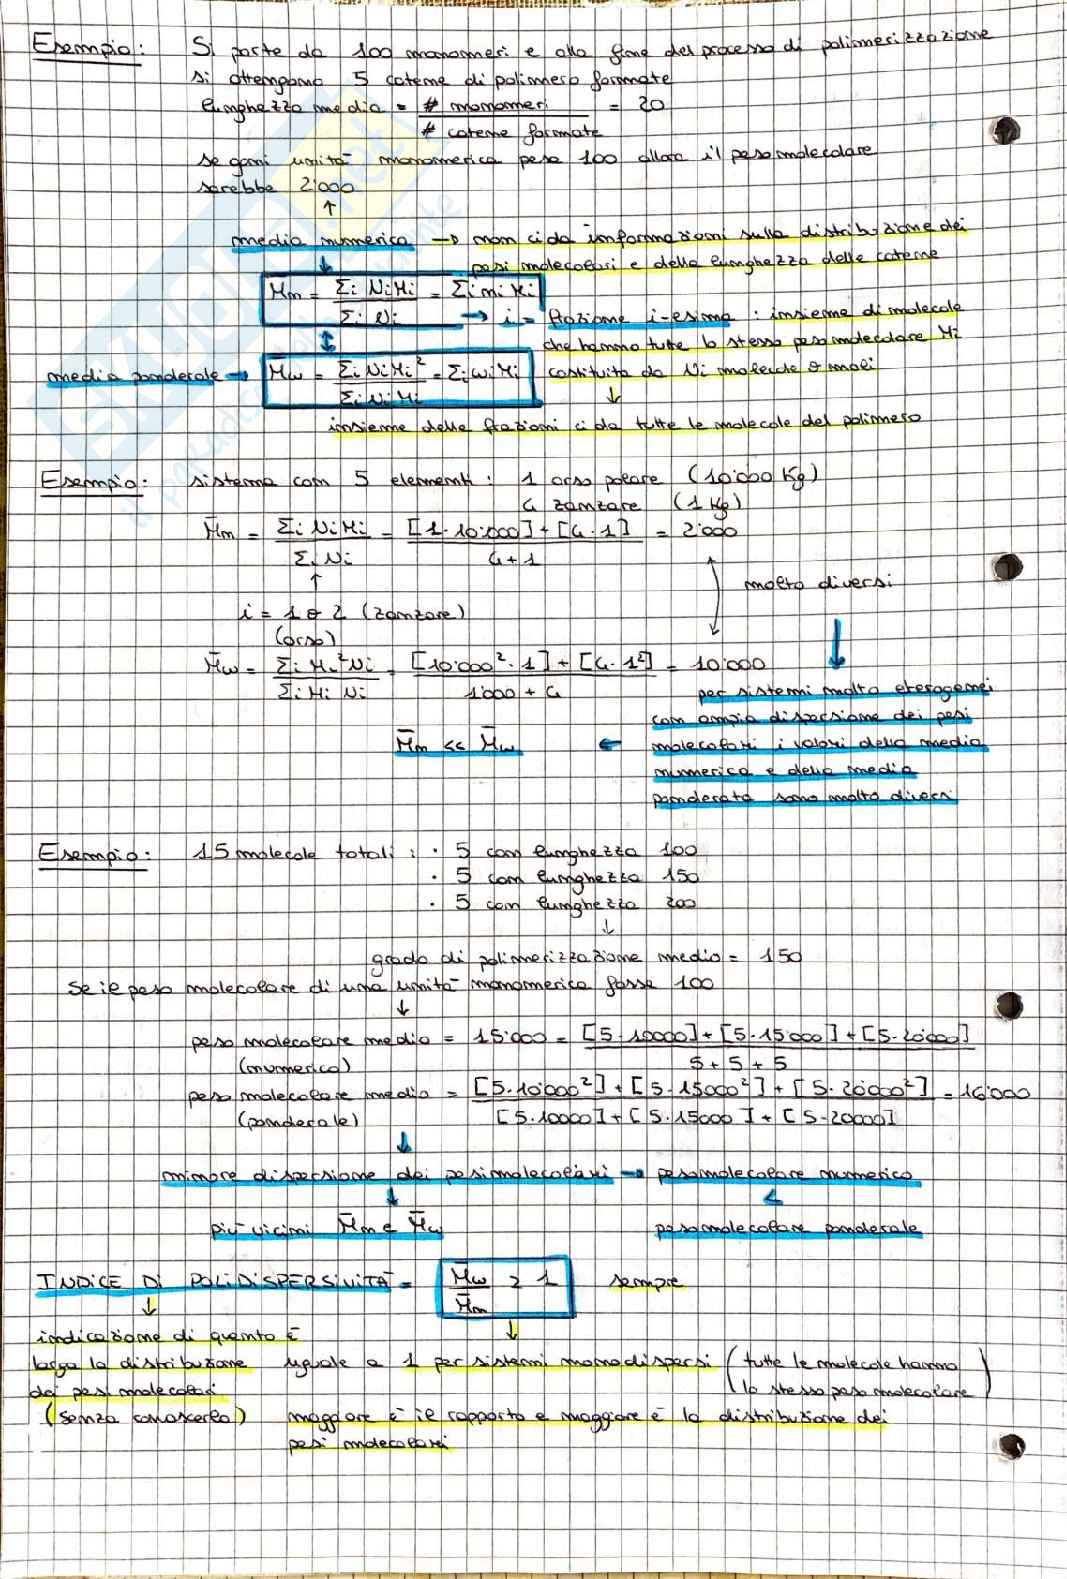 Esempio: Si parte da 100 monomeri e alla fine del processo di polimerizzazione
si ottengono 5 catene di polimero formate
lunghezza media = # monomeri / # catene formate = 20
se ogni unità monomerica pesa 100 allora il peso molecolare
sarebbe 2'000
↑
media numerica → non ci dà informazioni sulla distribuzione dei
pesi molecolari e della lunghezza delle catene
M̄n = Σi NiMi / Σi Ni = Σi ni Mi
→ i = frazione i-esima : insieme di molecole
che hanno tutte lo stesso peso molecolare Mi
media ponderale → M̄w = Σi NiMi² / Σi NiMi = Σi wi Mi costituita da Ni molecole o moli
↓
insieme delle frazioni ci dà tutte le molecole del polimero
Esempio: sistema con 5 elementi : 1 orso polare (10'000 Kg)
4 zanzare (1 Kg)
M̄n = Σi NiMi / Σi Ni = [1·10'000] + [4·1] / 4+1 = 2'000
↑
molto diversi
i = 1 o 2 (zanzare)
(orso)
M̄w = Σi Mi²Ni / Σi Mi Ni = [10'000²·1] + [4·1²] / 1'000 + 4 = 10'000
per sistemi molto eterogenei
con ampia dispersione dei pesi
M̄n << M̄w ← molecolari i valori della media
numerica e della media
ponderata sono molto diversi
Esempio: 15 molecole totali : · 5 con lunghezza 100
· 5 con lunghezza 150
· 5 con lunghezza 200
↓
grado di polimerizzazione medio = 150
Se il peso molecolare di una unità monomerica fosse 100
↓
peso molecolare medio = 15'000 = [5·10000] + [5·15'000] + [5·20'000] / 5+5+5
(numerico)
peso molecolare medio = [5·10'000²] + [5·15000²] + [5·20'000²] / [5·10000] + [5·15000] + [5·20000] = 16'000
(ponderale)
↓
minore dispersione dei pesi molecolari → peso molecolare numerico
↓ <
più vicini M̄n e M̄w peso molecolare ponderale
INDICE DI POLIDISPERSIVITÀ = M̄w / M̄n ≥ 1 sempre
↓ ↓
indicazione di quanto è
larga la distribuzione uguale a 1 per sistemi monodispersi (tutte le molecole hanno
dei pesi molecolari lo stesso peso molecolare)
(senza conoscerla) maggiore è il rapporto e maggiore è la distribuzione dei
pesi molecolari